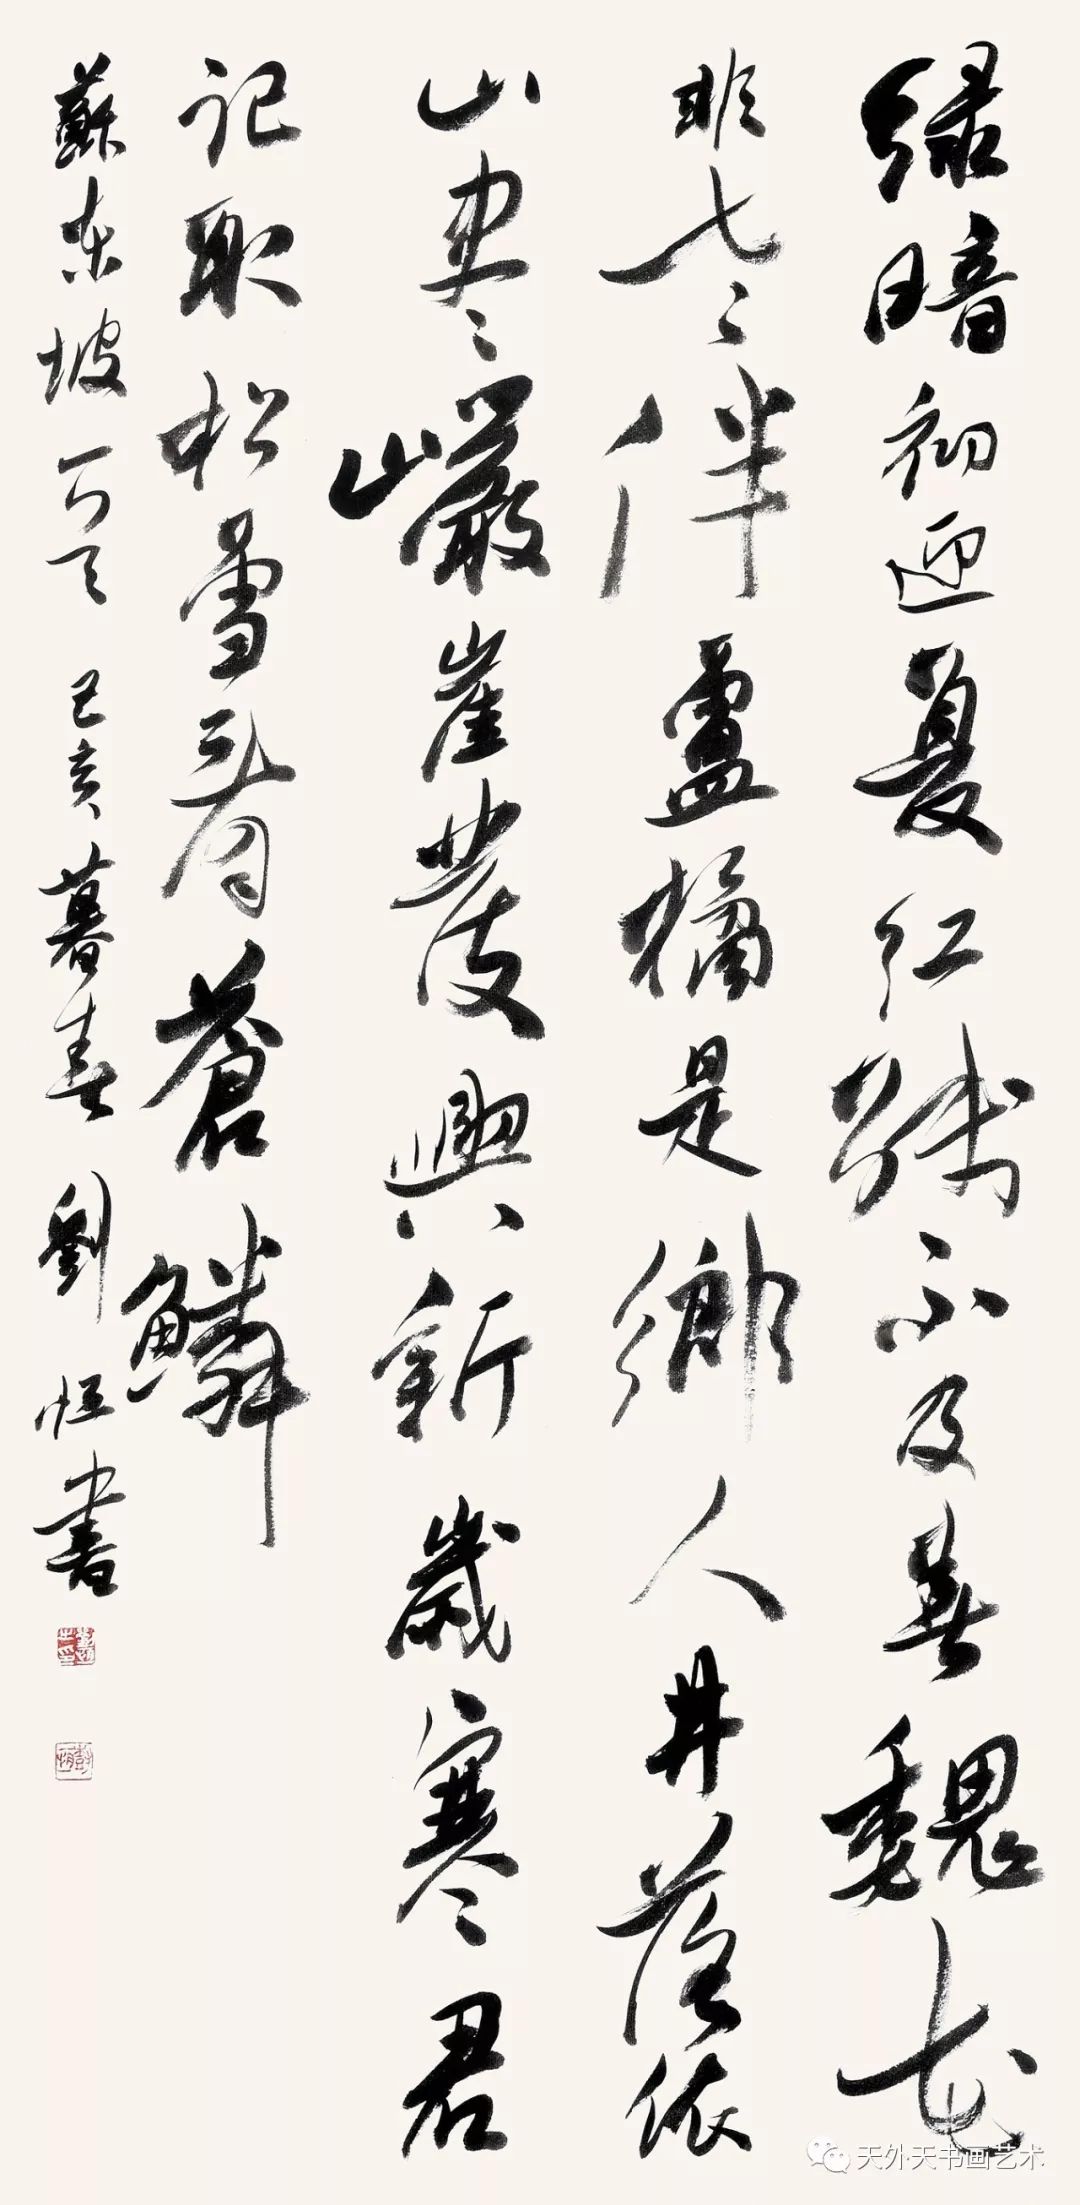 綠暗初迎夏紅殘不及春魏花
非老伴盧橘是鄉人井落依
山盡巖崖發興新歲寒君
記取松雪看蒼鱗
蘇東坡 己亥暮春 劉恒書
天外天书画艺术